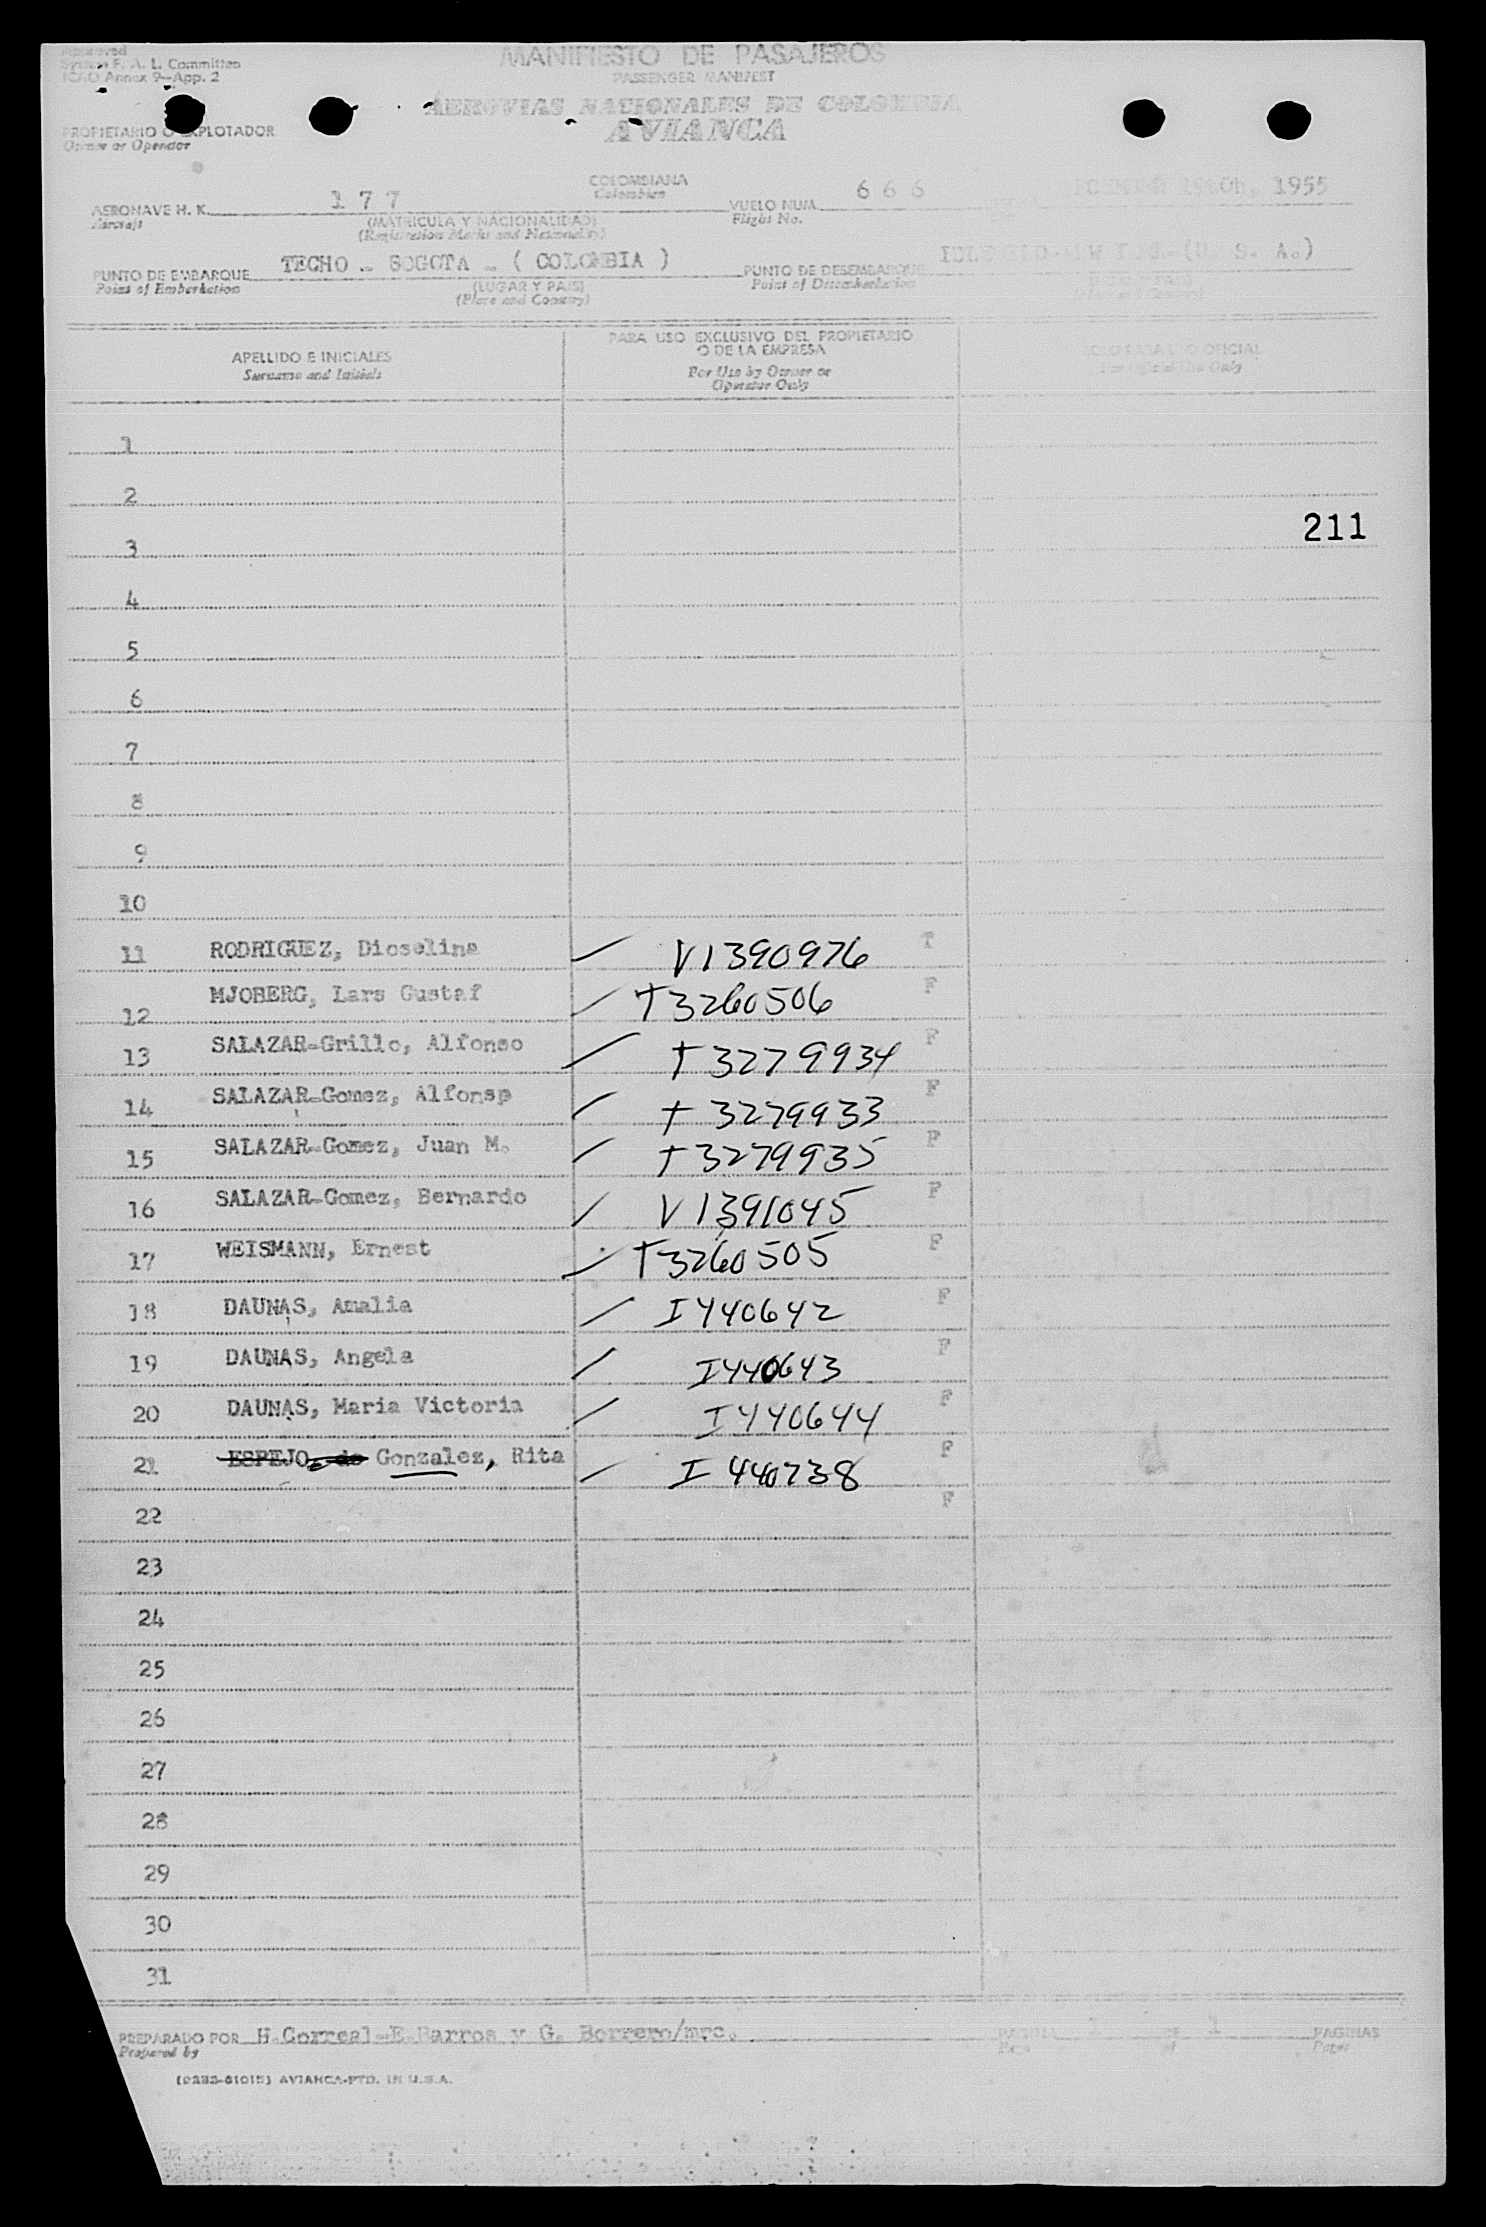 Approved
System F. A. L. Committee
ICAO Annex 9—App. 2
MANIFIESTO DE PASAJEROS
PASSENGER MANIFEST
AEROVIAS NACIONALES DE COLOMBIA
AVIANCA
PROPIETARIO O EXPLOTADOR
Owner or Operator
AERONAVE H. K. 177 COLOMBIANA VUELO NUM. 666 1955
Aircraft Colombian Flight No.
(MATRICULA Y NACIONALIDAD)
(Registration Marks and Nationality)
PUNTO DE EMBARQUE TECHO - BOGOTA - ( COLOMBIA ) PUNTO DE DESEMBARQUE (U. S. A.)
Point of Embarkation (LUGAR Y PAIS) Point of Disembarkation
(Place and Country)
APELLIDO E INICIALES
Surname and Initials
PARA USO EXCLUSIVO DEL PROPIETARIO
O DE LA EMPRESA
For Use by Owner or
Operator Only
SOLO PARA USO OFICIAL
For Official Use Only
1
2
211
3
4
5
6
7
8
9
10
11 RODRIGUEZ, Dioselina V1390976 T
12 MJOBERG, Lars Gustaf T3260506 F
13 SALAZAR-Grillo, Alfonso T3279934 F
14 SALAZAR-Gomez, Alfonsp T3279933 F
15 SALAZAR-Gomez, Juan M. T3279935 F
16 SALAZAR-Gomez, Bernardo V1391045 F
17 WEISMANN, Ernest T3260505 F
18 DAUNAS, Amalia I440642 F
19 DAUNAS, Angela I440643 F
20 DAUNAS, Maria Victoria I440644 F
21 ESPEJO, de Gonzalez, Rita I440738 F
22 F
23
24
25
26
27
28
29
30
31
PREPARADO POR H.Correal-E.Barros y G. Borrero/mrc. PAGINA 1 DE 1 PAGINAS
Prepared by Page of Pages
AVIANCA-PTD. IN U.S.A.